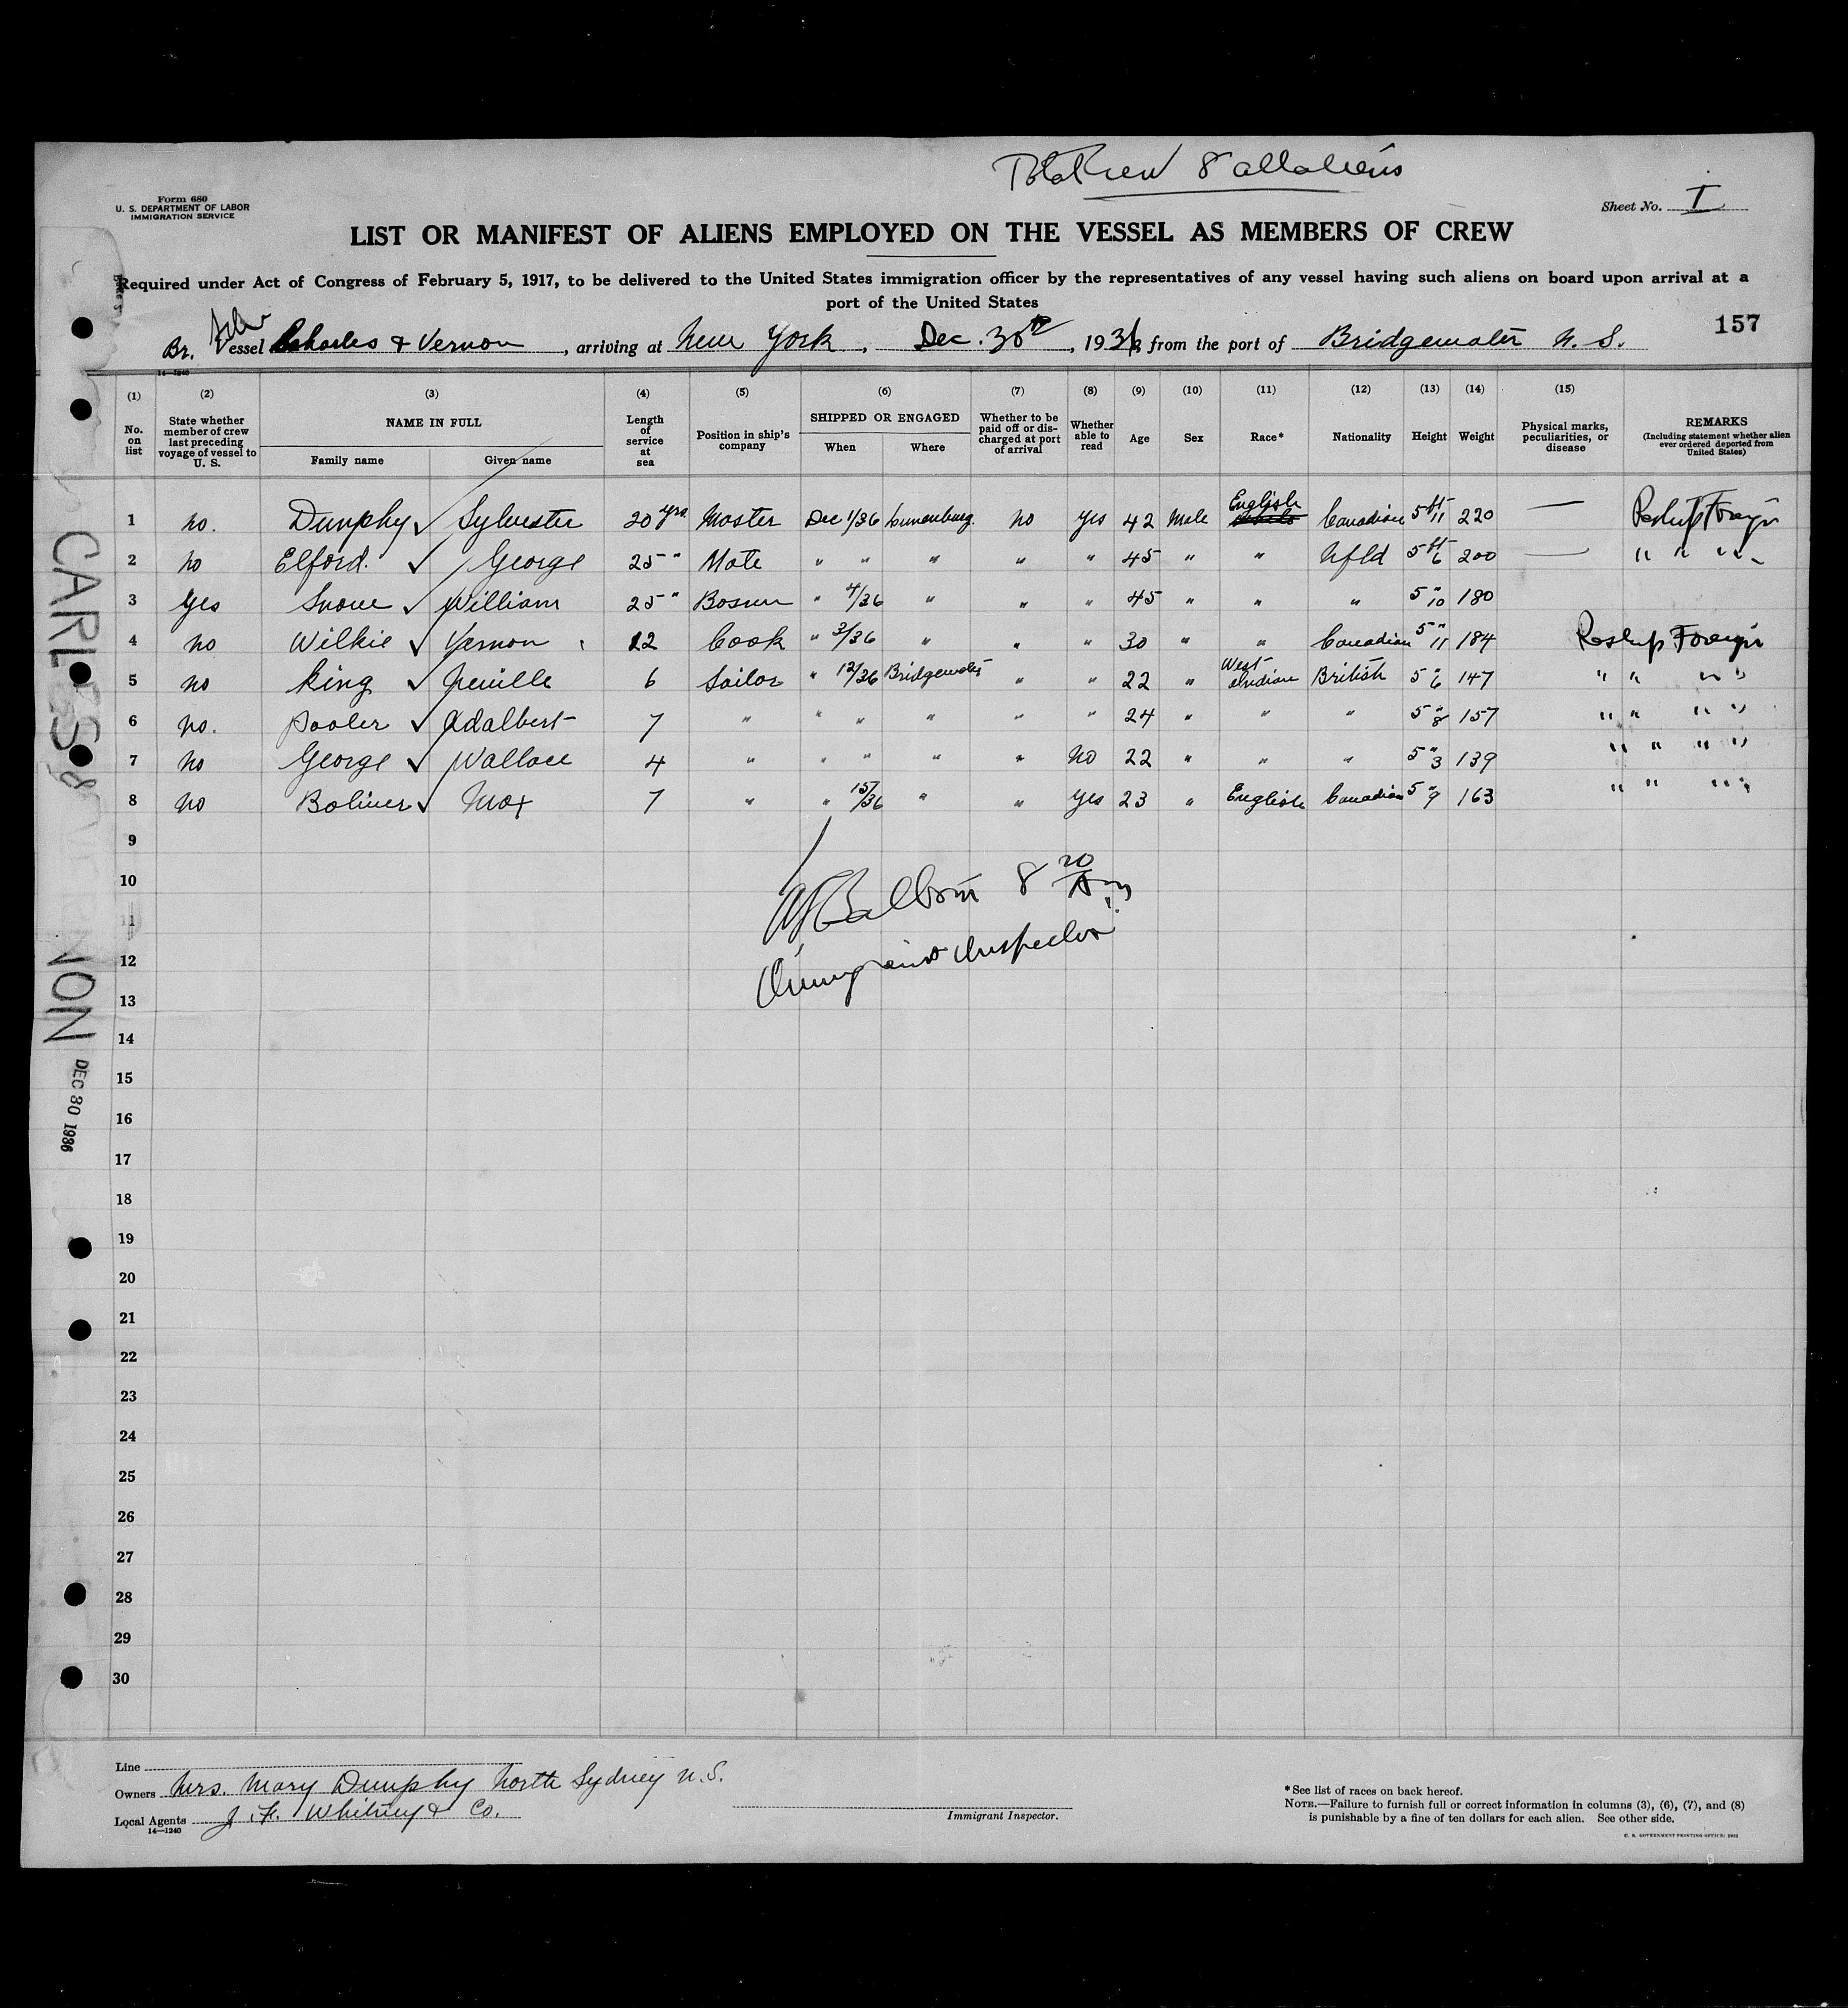 Total Crew 8 all aliens
Form 680
U. S. DEPARTMENT OF LABOR
IMMIGRATION SERVICE
Sheet No. I
LIST OR MANIFEST OF ALIENS EMPLOYED ON THE VESSEL AS MEMBERS OF CREW
Required under Act of Congress of February 5, 1917, to be delivered to the United States immigration officer by the representatives of any vessel having such aliens on board upon arrival at a
port of the United States
157
Br. Schr Vessel Charles & Vernon, arriving at New York, Dec. 30th, 1936, from the port of Bridgewater N. S.
14—1240
(1) (2) (3) (4) (5) (6) (7) (8) (9) (10) (11) (12) (13) (14) (15)
No. on list
State whether member of crew last preceding voyage of vessel to U. S.
NAME IN FULL
Family name Given name
Length of service at sea
Position in ship's company
SHIPPED OR ENGAGED
When Where
Whether to be paid off or discharged at port of arrival
Whether able to read
Age
Sex
Race*
Nationality
Height
Weight
Physical marks, peculiarities, or disease
REMARKS
(Including statement whether alien ever ordered deported from United States)
1 no. Dunphy ✓ Sylvester 20 yrs. Master Dec 1/36 Lunenburg. no yes 42 Male English Canadian 5 ft 11 220 — Reship Foreign
2 no Elford. ✓ George 25 " Mate " " " " " 45 " " Nfld 5 ft 6 200 — " " " "
3 Yes Snow ✓ William 25 " Bosun " 4/36 " " " 45 " " " 5 " 10 180
4 no Wilkie ✓ Vernon 12 Cook " 3/36 " " " 30 " " Canadian 5 " 11 184 Reship Foreign
5 no King ✓ Neville 6 Sailor " 12/36 Bridgewater " " 22 " West Indian British 5 " 6 147 " " " "
6 no. Pooler ✓ Adalbert 7 " " " " " " 24 " " " 5 " 8 157 " " " "
7 no George ✓ Wallace 4 " " " " " No 22 " " " 5 " 3 139 " " " "
8 no Boliver ✓ Max 7 " " 15/36 " " Yes 23 " English Canadian 5 " 9 163 " " " "
9
10
8 20 Am
11
12
Immigrant Inspector
13
14
15
16
17
18
19
20
21
22
23
24
25
26
27
28
29
30
CARL
NON
DEC 30 1936
Line
Owners Mrs. Mary Dunphy North Sydney N.S.
Local Agents J. F. Whitney & Co.
14—1240
Immigrant Inspector.
*See list of races on back hereof.
NOTE.—Failure to furnish full or correct information in columns (3), (6), (7), and (8)
is punishable by a fine of ten dollars for each alien. See other side.